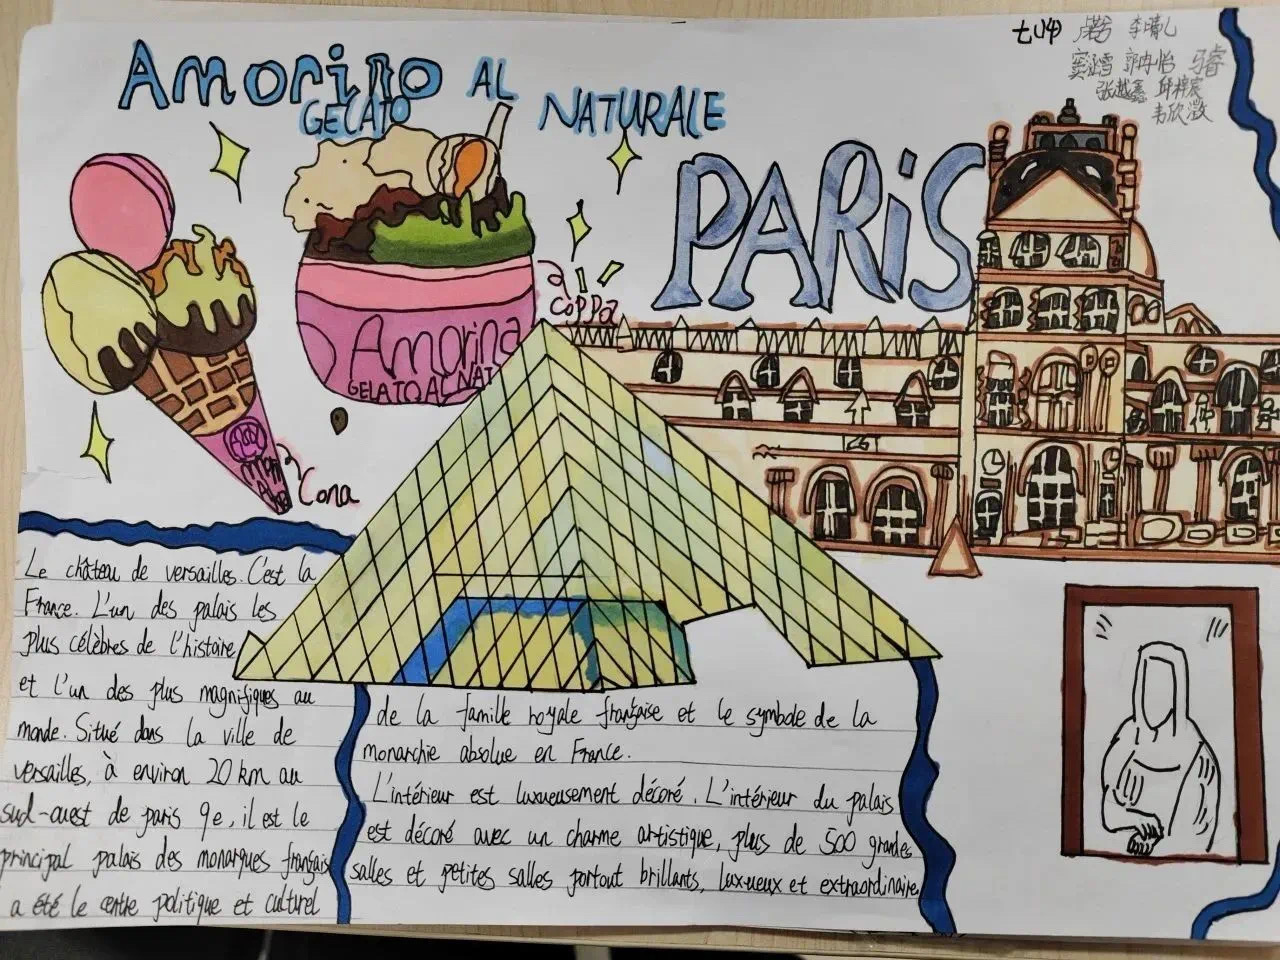 Amorino AL
GELATO NATURALE
PARiS
李晴儿
张越鑫
韦欣澂
coppa
Amorino
GELATO AL NAT
Cona
Le château de versailles. C'est la
France. L'un des palais les
plus célèbres de l'histoire
et l'un des plus magnifiques au
monde. Situé dans la ville de
versailles, à environ 20 km au
sud-ouest de paris 9e, il est le
principal palais des monarques français
a été le centre politique et culturel
de la famille royale française et le symbole de la
monarchie absolue en France.
L'intérieur est luxueusement décoré. L'intérieur du palais
est décoré avec un charme artistique, plus de 500 grandes
salles et petites salles partout brillants, luxueux et extraordinaire